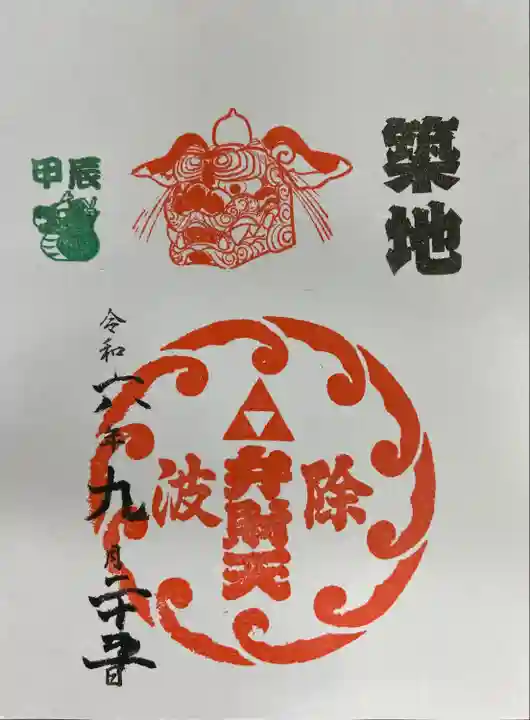 築地
甲辰
除
弁財天
波
令和六年九月二十五日